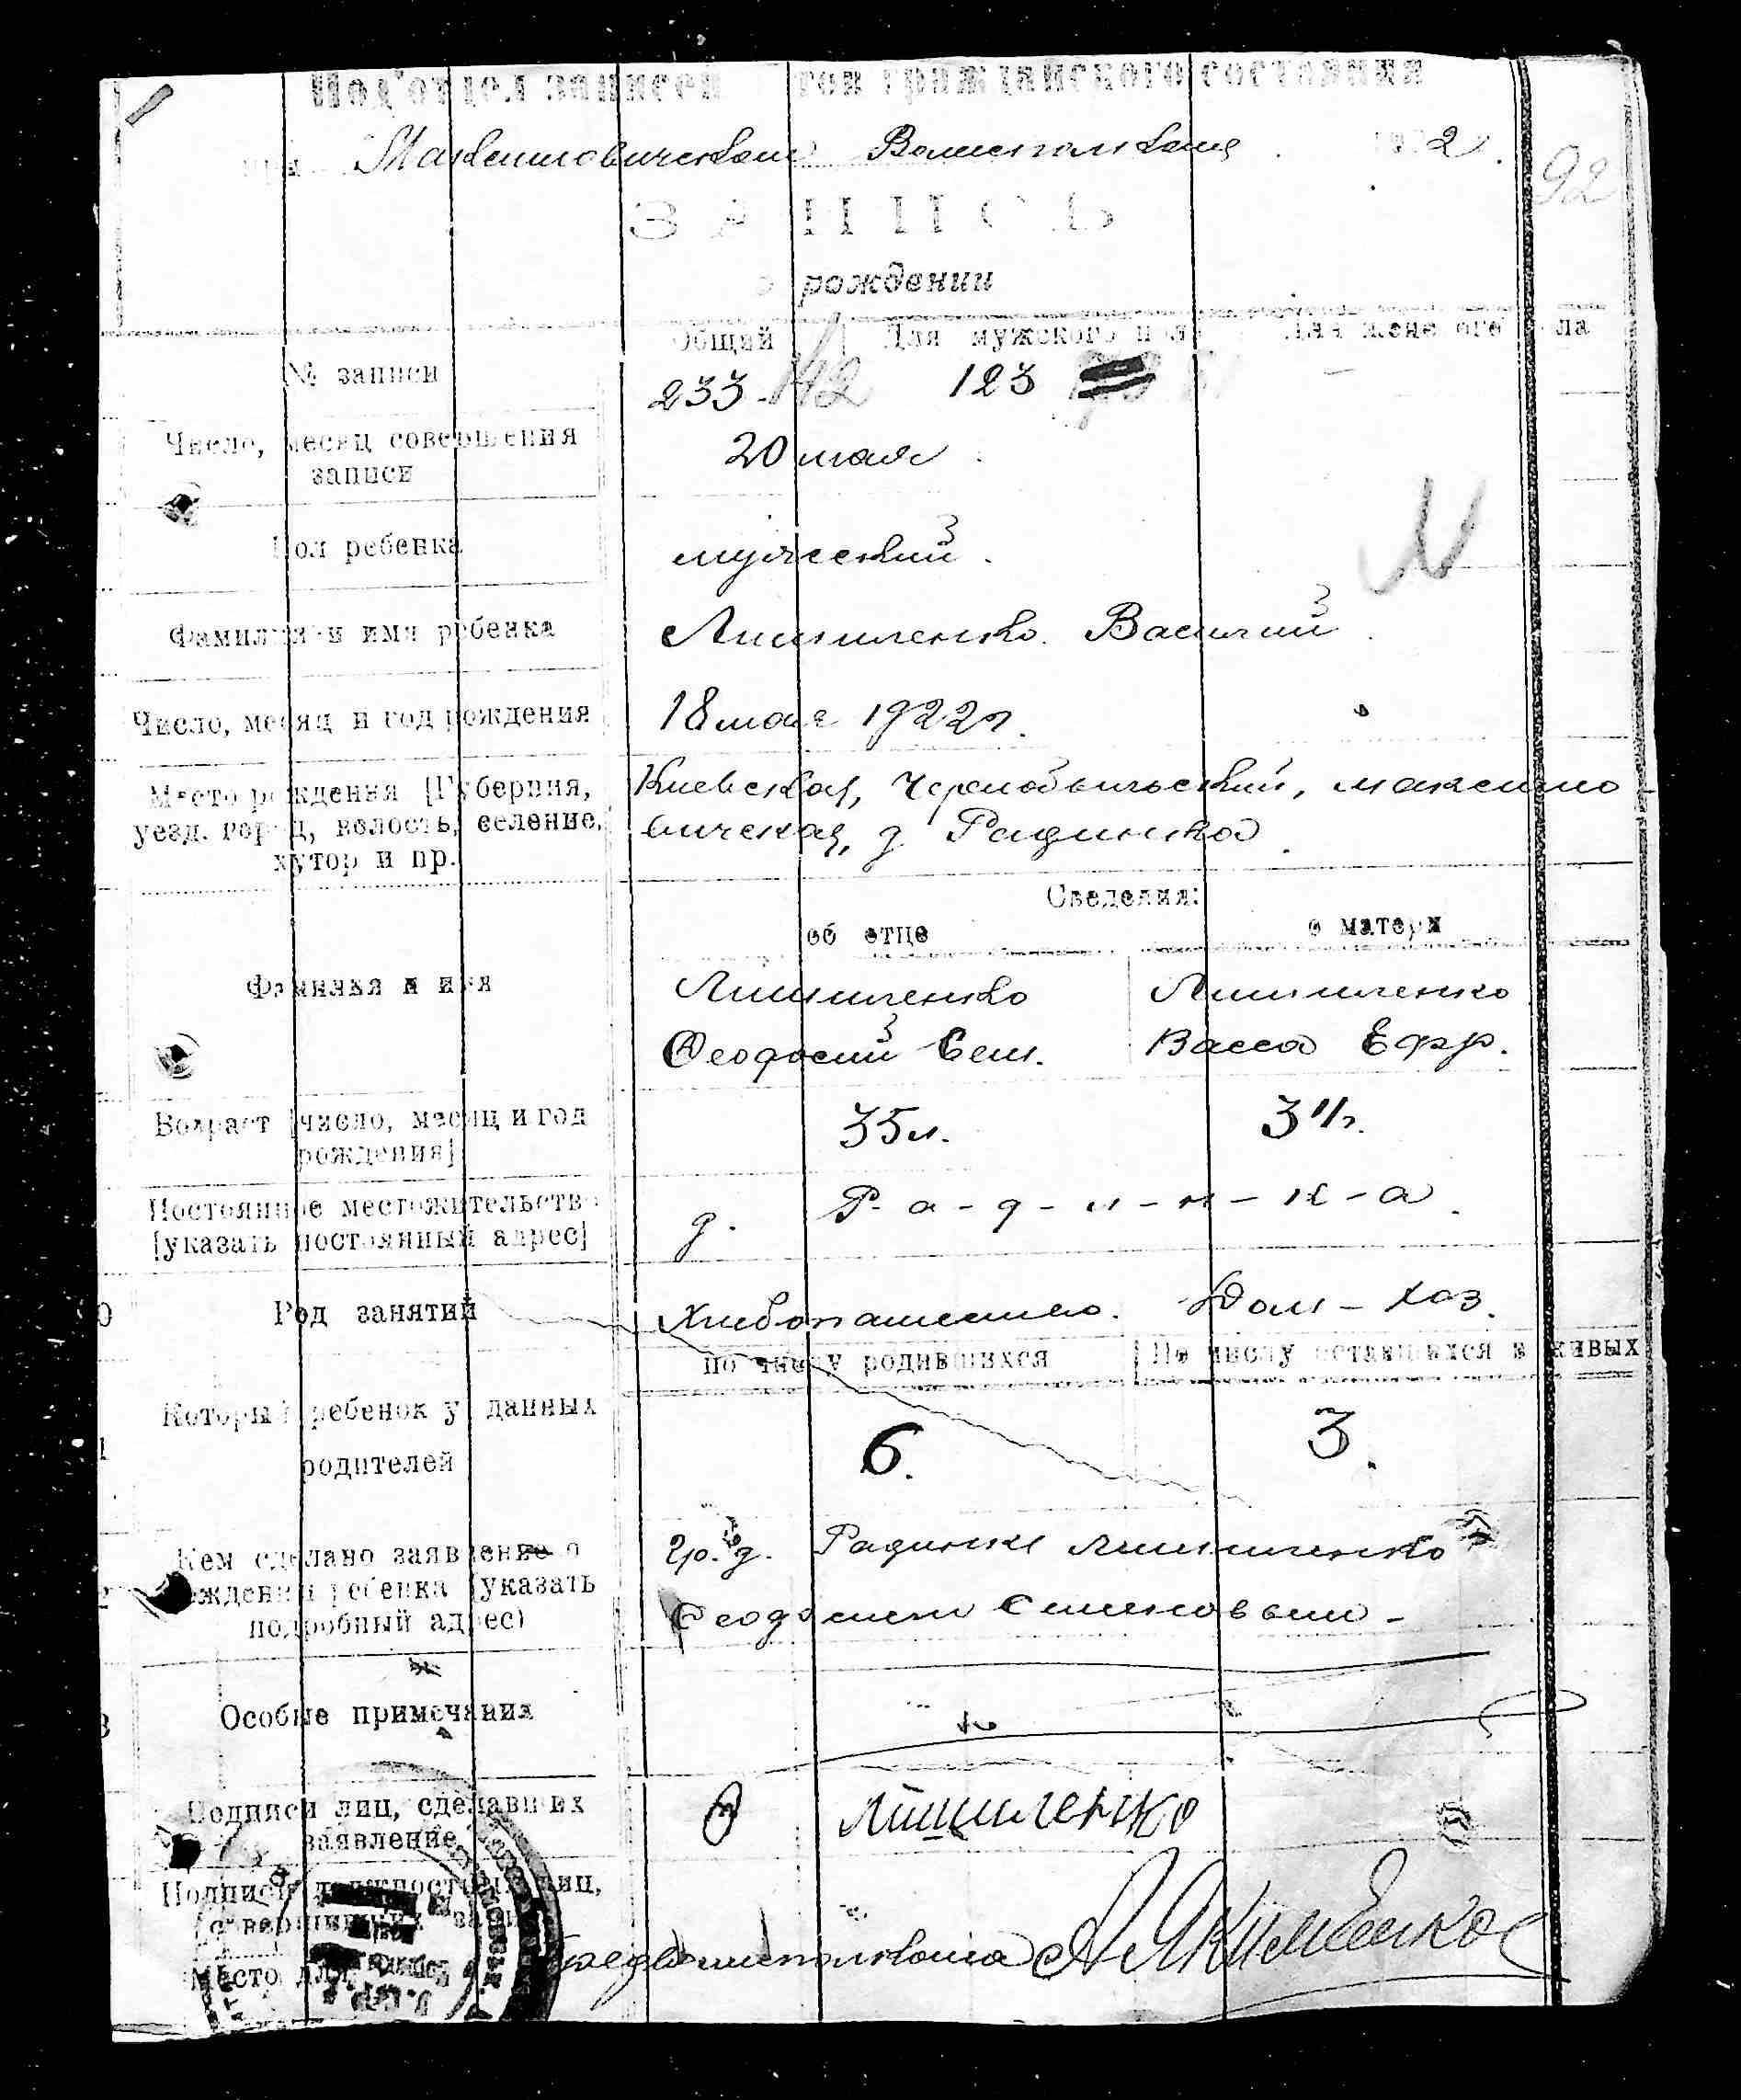 Под'отдел записей актов гражданского состояния
при Максимовичском Волисполкоме. 1922 г.
92
ЗАПИСЬ
о рождении
Общий Для мужского пола Для женского пола
№ записи 233 142 123
Число, месяц совершения
записи
20 мая
Пол ребенка мужеский.
Фамилия и имя ребенка Лишиленко Василий.
Число, месяц и год рождения 18 мая 1922 г.
Место рождения [Губерния,
уезд, город, волость, селение,
хутор и пр.
Киевская, Чернобыльский, Максимо-
вичская, д. Радинка.
Сведения:
об отце о матери
Фамилия и имя
Лишиленко Лишиленко
Феодосий Сем. Васса Ефр.
Возраст [число, месяц и год
рождения]
35 л. 31 г.
Постоянное местожительство
[указать постоянный адрес]
д. Р-а-д-и-н-к-а.
Род занятий Хлебопашество. Дом-хоз.
по числу родившихся По числу оставшихся в живых
Который ребенок у данных
родителей
6. 3.
Кем сделано заявление о
рождении ребенка (указать
подробный адрес)
гр. д. Радинки Лишиленко
Феодосием Семеновым -
Особые примечания
Подписи лиц, сделавших
заявление
Ф Лишиленко
Подписи должностных лиц,
совершивших запись
Место для
Предволисполкома А Якименко